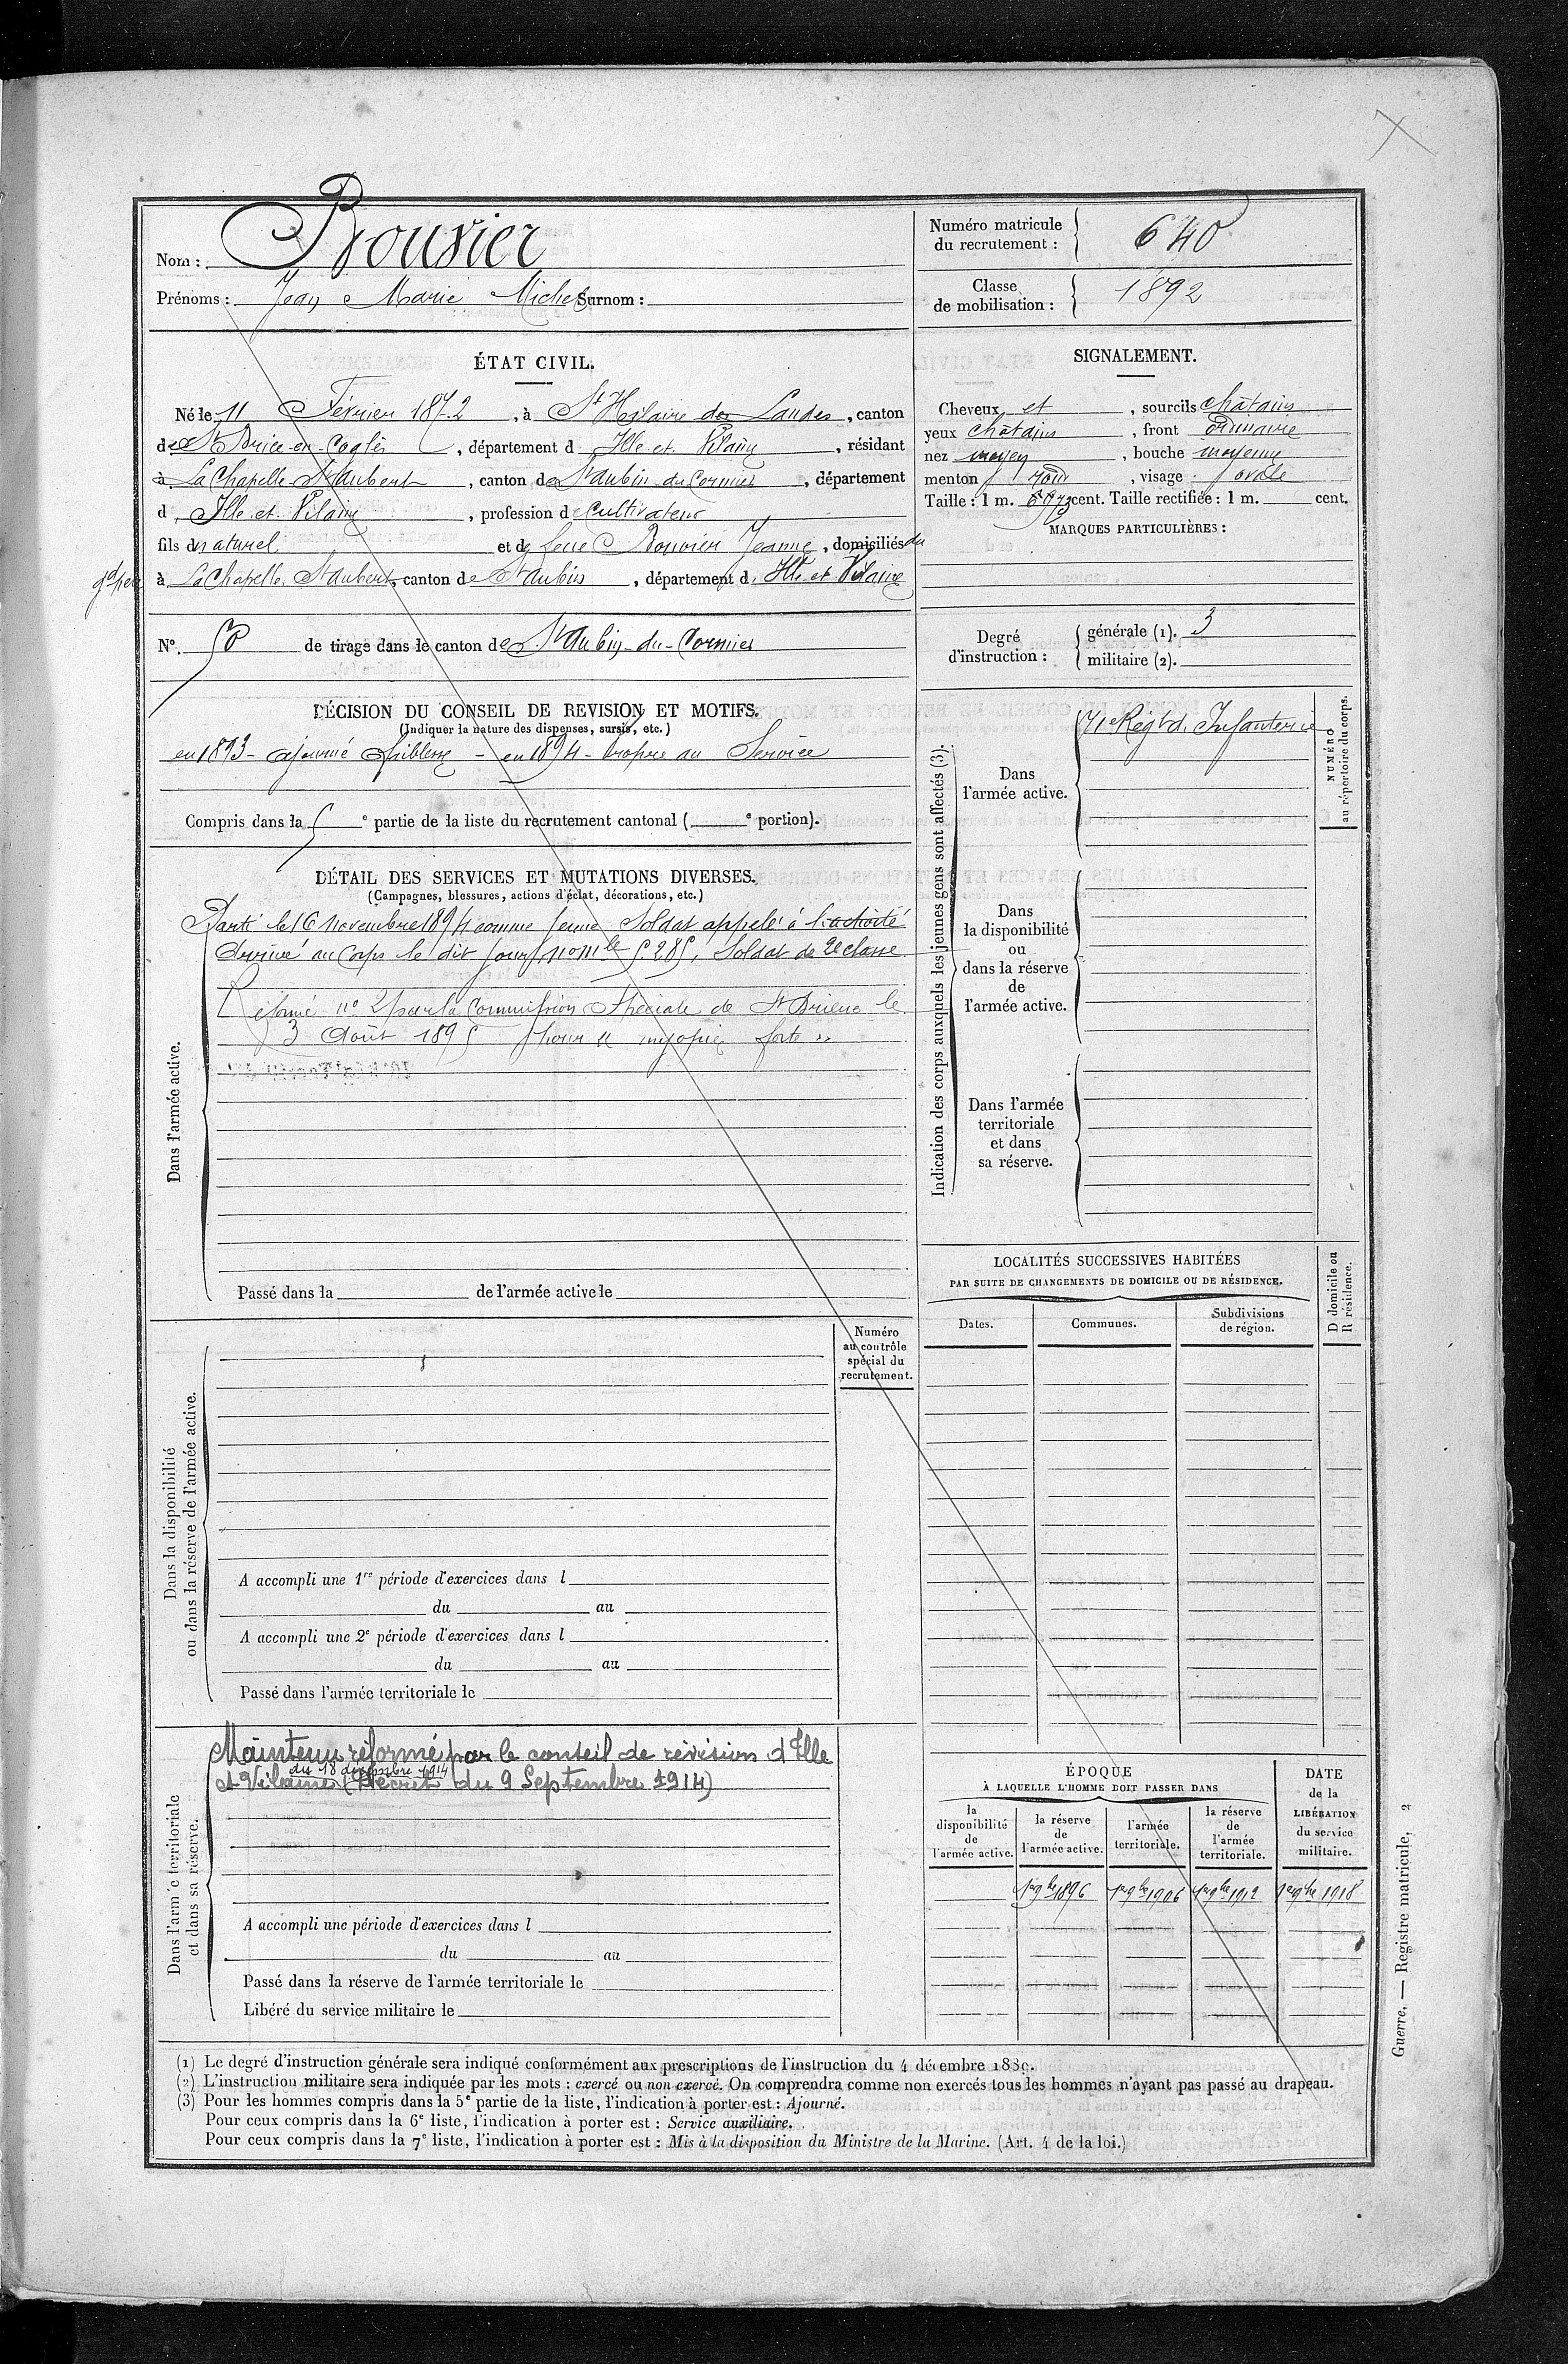 Nom : Bouvier
Prénoms : Jean Marie Michel Surnom :
Numéro matricule du recrutement : 640
Classe de mobilisation : 1892
ÉTAT CIVIL.
Né le 11 Février 1872, à St Hilaire des Landes, canton
de St Brice-en-Coglès, département d Ille-et-Vilaine, résidant
à La Chapelle-St Aubert, canton de St Aubin du Cormier, département
d Ille-et-Vilaine, profession de cultivateur
fils de naturel et de feue Bouvier Jeanne, domiciliés du
gd père à La Chapelle St Aubert, canton de St Aubin, département d Ille-et-Vilaine
No. 50 de tirage dans le canton de St Aubin-du-Cormier
DÉCISION DU CONSEIL DE REVISION ET MOTIFS.
(Indiquer la nature des dispenses, sursis, etc.)
en 1893 - ajourné faiblesse - en 1894 - propre au Service
Compris dans la e partie de la liste du recrutement cantonal ( e portion).
DÉTAIL DES SERVICES ET MUTATIONS DIVERSES.
(Campagnes, blessures, actions d'éclat, décorations, etc.)
Dans l'armée active.
Parti le 16 novembre 1894 comme jeune Soldat appelé à l'activité
Arrivé au corps le dit jour, no mle 5285, Soldat de 2e classe
Réformé no 2 par la Commission Spéciale de St Brieuc le
3 Août 1895 pour « myopie forte »
Passé dans la de l'armée active le
Dans la disponibilité
ou dans la réserve de l'armée active.
Numéro
au contrôle
spécial du
recrutement.
A accompli une 1re période d'exercices dans l
du au
A accompli une 2e période d'exercices dans l
du au
Passé dans l'armée territoriale le
Dans l'armée territoriale
et dans sa réserve.
Maintenu réformé par le conseil de révision d'Ille
du 18 décembre 1914
et Vilaine (Décret du 9 Septembre 1914)
A accompli une période d'exercices dans l
du au
Passé dans la réserve de l'armée territoriale le
Libéré du service militaire le
SIGNALEMENT.
Cheveux et, sourcils châtains
yeux châtains, front ordinaire
nez moyen, bouche moyenne
menton rond, visage ovale
Taille : 1 m. cent. Taille rectifiée : 1 m. cent.
MARQUES PARTICULIÈRES :
Degré d'instruction : générale (1). 3
militaire (2).
Indication des corps auxquels les jeunes gens sont affectés (3).
Dans
l'armée active.
71e Régt d'Infanterie
NUMÉRO
au répertoire du corps.
Dans
la disponibilité
ou
dans la réserve
de
l'armée active.
Dans l'armée
territoriale
et dans
sa réserve.
LOCALITÉS SUCCESSIVES HABITÉES
PAR SUITE DE CHANGEMENTS DE DOMICILE OU DE RÉSIDENCE.
Dates. Communes. Subdivisions de région.
D domicile ou
R résidence.
ÉPOQUE
À LAQUELLE L'HOMME DOIT PASSER DANS
la disponibilité de l'armée active.
la réserve de l'armée active.
l'armée territoriale.
la réserve de l'armée territoriale.
DATE de la LIBÉRATION du service militaire.
1er 9bre 1896 1er 9bre 1906 1er 9bre 1912 1er 9bre 1918
(1) Le degré d'instruction générale sera indiqué conformément aux prescriptions de l'instruction du 4 décembre 1889.
(2) L'instruction militaire sera indiquée par les mots : exercé ou non exercé. On comprendra comme non exercés tous les hommes n'ayant pas passé au drapeau.
(3) Pour les hommes compris dans la 5e partie de la liste, l'indication à porter est : Ajourné.
Pour ceux compris dans la 6e liste, l'indication à porter est : Service auxiliaire.
Pour ceux compris dans la 7e liste, l'indication à porter est : Mis à la disposition du Ministre de la Marine. (Art. 4 de la loi.)
Guerre. — Registre matricule. 2